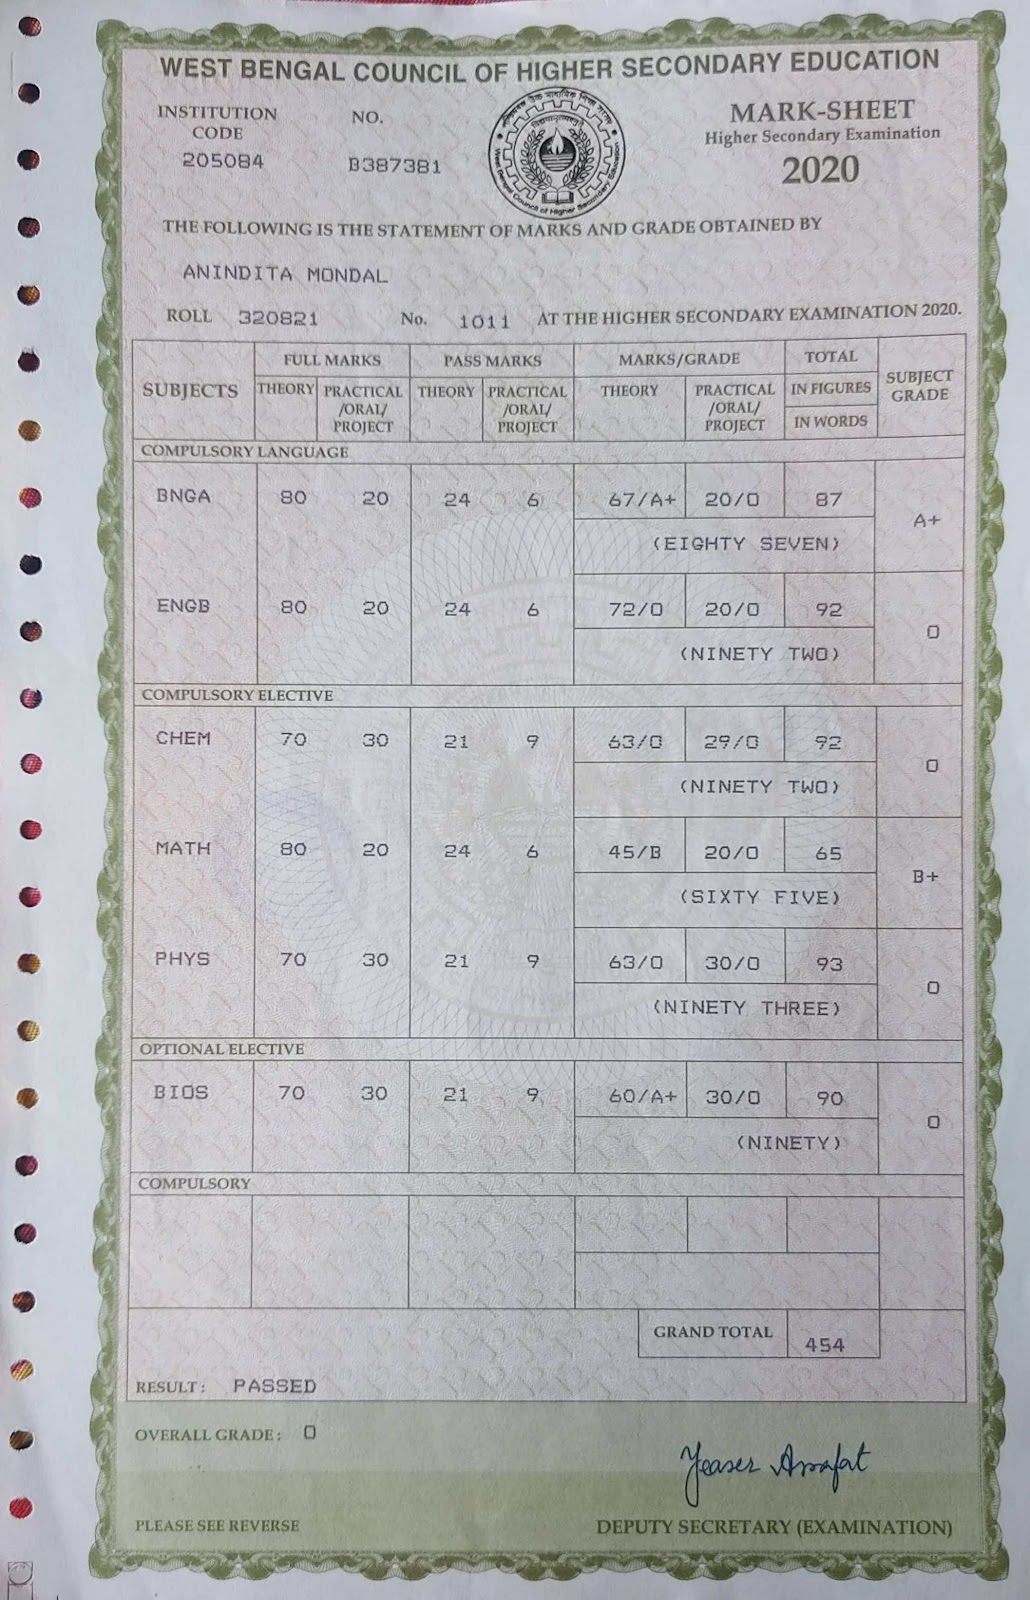 WEST BENGAL COUNCIL OF HIGHER SECONDARY EDUCATION
INSTITUTION CODE
205084
NO.
B387381
West Bengal Council of Higher Secondary Education
MARK-SHEET
Higher Secondary Examination
2020
THE FOLLOWING IS THE STATEMENT OF MARKS AND GRADE OBTAINED BY
ANINDITA MONDAL
ROLL 320821 No. 1011 AT THE HIGHER SECONDARY EXAMINATION 2020.
SUBJECTS FULL MARKS PASS MARKS MARKS/GRADE TOTAL SUBJECT GRADE
THEORY PRACTICAL /ORAL/ PROJECT THEORY PRACTICAL /ORAL/ PROJECT THEORY PRACTICAL /ORAL/ PROJECT IN FIGURES
IN WORDS
COMPULSORY LANGUAGE
BNGA 80 20 24 6 67/A+ 20/O 87 A+
(EIGHTY SEVEN)
ENGB 80 20 24 6 72/O 20/O 92 O
(NINETY TWO)
COMPULSORY ELECTIVE
CHEM 70 30 21 9 63/O 29/O 92 O
(NINETY TWO)
MATH 80 20 24 6 45/B 20/O 65 B+
(SIXTY FIVE)
PHYS 70 30 21 9 63/O 30/O 93 O
(NINETY THREE)
OPTIONAL ELECTIVE
BIOS 70 30 21 9 60/A+ 30/O 90 O
(NINETY)
COMPULSORY
GRAND TOTAL 454
RESULT : PASSED
OVERALL GRADE : O
Yeaser Arrafat
PLEASE SEE REVERSE
DEPUTY SECRETARY (EXAMINATION)